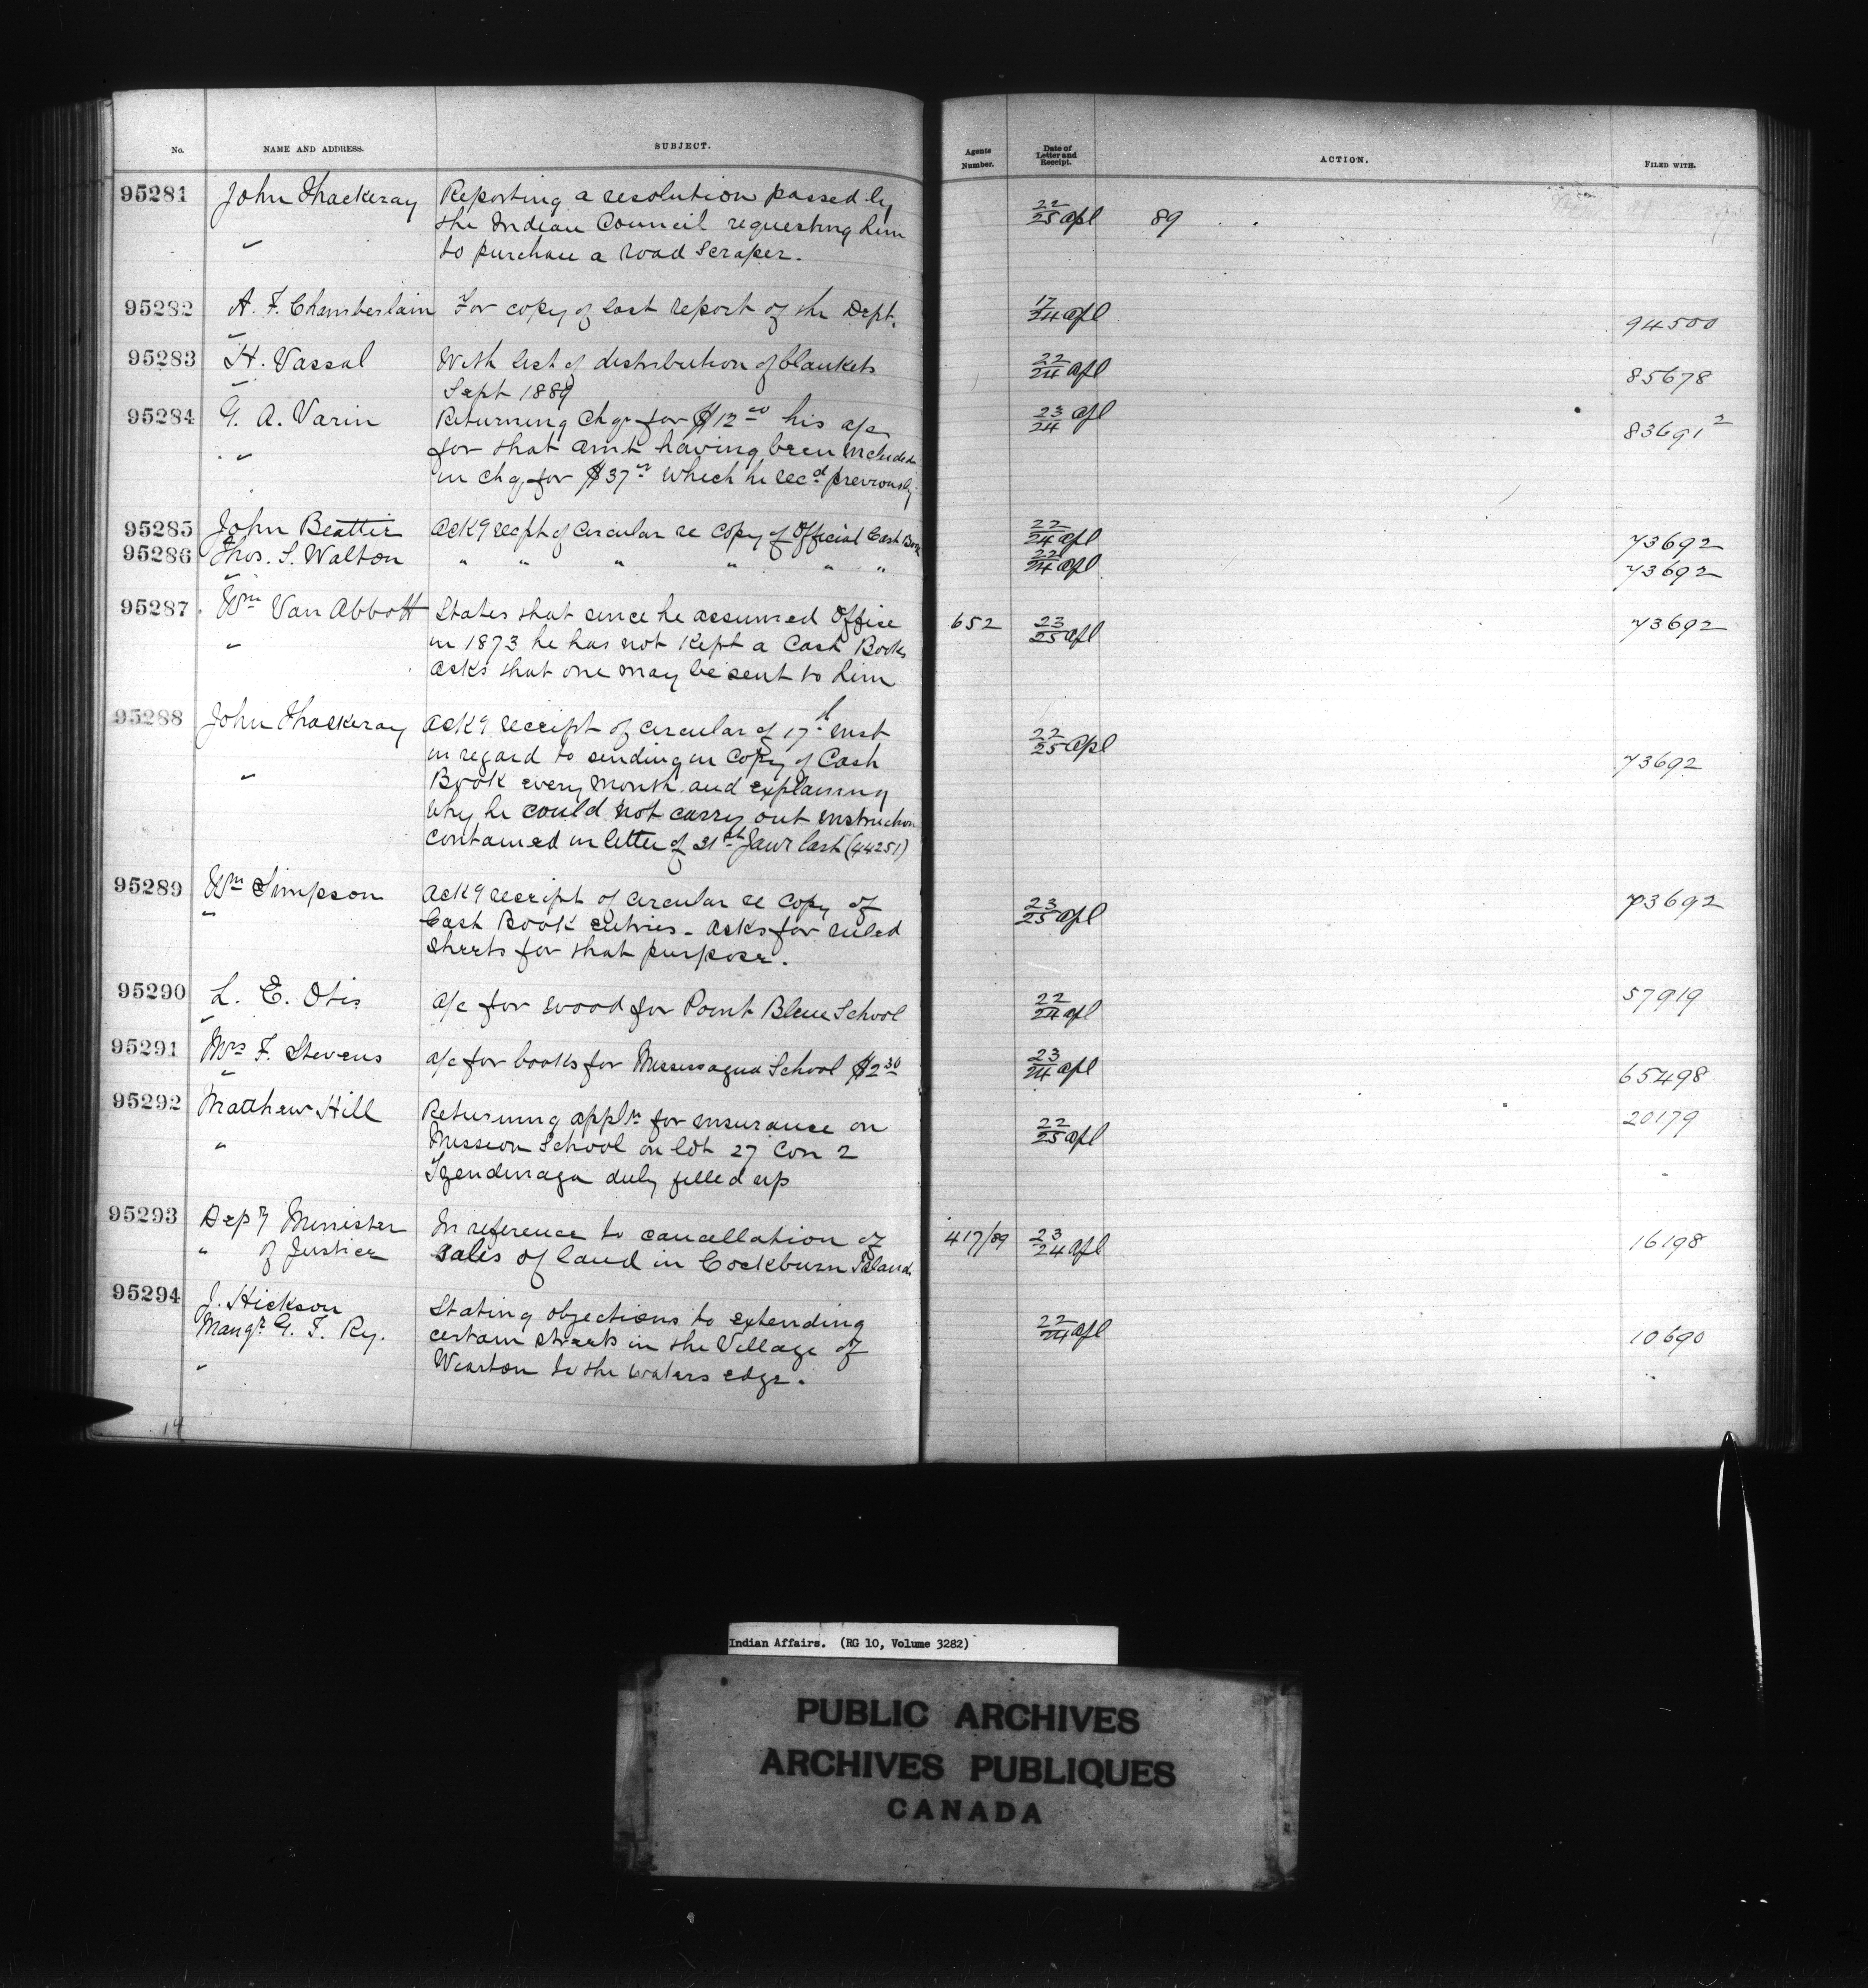 No. NAME AND ADDRESS. SUBJECT. Agents Number. Date of Letter and Receipt. ACTION. FILED WITH.
95281 John Thackeray Reporting a resolution passed by 22/25 apl 89
the Indian Council requesting him
" to purchase a road scraper.
95282 A. F. Chamberlain For copy of last report of the Dept. 17/24 apl 94500
95283 H. Vassal With list of distribution of blankets 22/24 apl 85678
" Sept 1889
95284 G. A. Varin Returning Chq. for $12 00 his a/c 23/24 apl 83691 2
for that amt having been included
" in chq. for $37 which he recd previously
95285 John Beattie Ackg recpt of circular re Copy of Official Cash Book 22/24 apl 73692
95286 Thos. S. Walton " " " " " " 22/24 apl 73692
95287 Wm Van Abbott States that since he assumed Office 652 23/25 apl 73692
" in 1873 he has not kept a Cash Book
asks that one may be sent to him
95288 John Thackeray Ackg receipt of circular of 17th inst 22/25 apl 73692
in regard to sending in Copy of Cash
" Book every month and explaining
why he could not carry out instruction
contained in letter of 31st Jany last (44251)
95289 Wm Simpson Ackg receipt of circular re Copy of 23/25 apl 73692
" Cash Book entries - asks for ruled
sheets for that purpose.
95290 L. E. Otis a/c for wood for Point Bleue School 22/24 apl 57919
95291 Mrs F. Stevens a/c for books for Mississagua School $2 30 23/24 apl 65498
95292 Matthew Hill Returning appln for insurance on 22/25 apl 20179
" Mission School on lot 27 Con 2
Tyendinaga duly filled up
95293 Depy Minister In reference to cancellation of 417/89 23/24 apl 16198
" of Justice sales of land in Cockburn Island
95294 J. Hickson Stating objections to extending 22/24 apl 10690
Mangr. G. T. Ry. certain streets in the Village of
" Wiarton to the waters edge.
14
Indian Affairs. (RG 10, Volume 3282)
PUBLIC ARCHIVES
ARCHIVES PUBLIQUES
CANADA